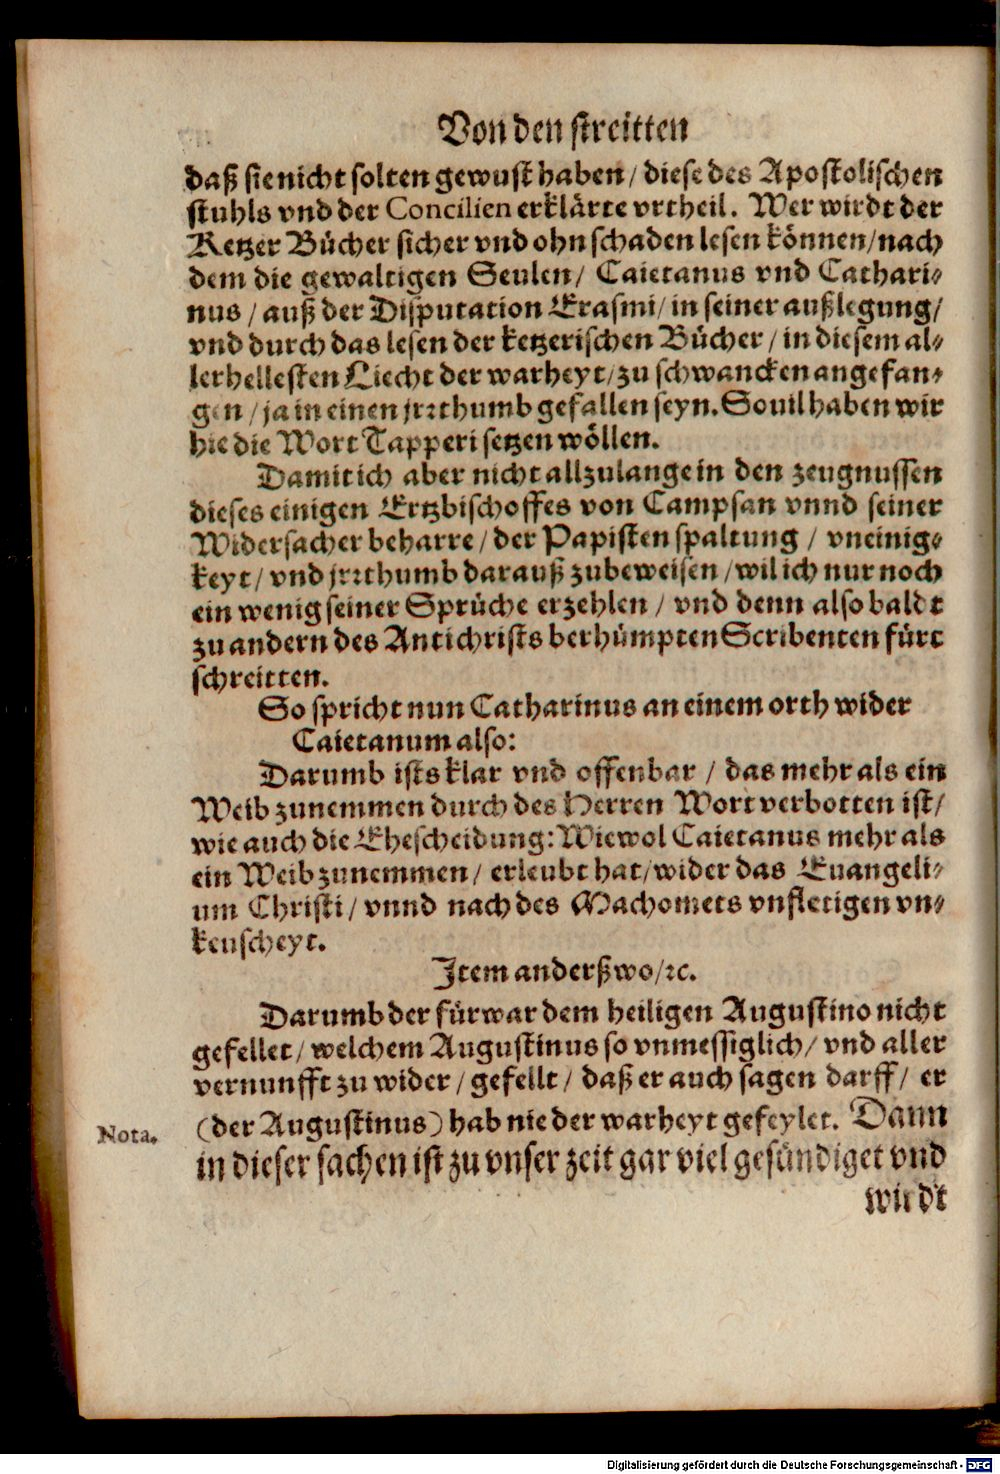 Von den streitten
daß sie nicht solten gewust haben / diese des Apostolischen
stuhls vnd der Concilien erklärte vrtheil. Wer wirdt der
Ketzer Bücher sicher vnd ohn schaden lesen können / nach
dem die gewaltigen Seulen / Caietanus vnd Cathari-
nus / auß der Disputation Erasmi / in seiner außlegung /
vnd durch das lesen der ketzerischen Bücher / in diesem al-
lerhellesten Liecht der warheyt / zu schwancken angefan-
gen / ja in einen jrꝛthumb gefallen seyn. So vil haben wir
hie die Wort Tapperi setzen wöllen.
Damit ich aber nicht allzulange in den zeugnussen
dieses einigen Ertzbischoffes von Campsan vnnd seiner
Widersacher beharre / der Papisten spaltung / vneinig-
keyt / vnd jrꝛthumb darauß zubeweisen / wil ich nur noch
ein wenig seiner Sprüche erzehlen / vnd denn also baldt
zu andern des Antichrists berhümpten Scribenten fürt
schreitten.
So spricht nun Catharinus an einem orth wider
Caietanum also:
Darumb ists klar vnd offenbar / das mehr als ein
Weib zunemmen durch des Herren Wort verbotten ist /
wie auch die Ehescheidung: Wiewol Caietanus mehr als
ein Weib zunemmen / erleubt hat / wider das Euangeli-
um Christi / vnnd nach des Machomets vnfletigen vn-
keuscheyt.
Item anderßwo / ꝛc.
Darumb der fürwar dem heiligen Augustino nicht
gefellet / welchem Augustinus so vnmessiglich / vnd aller
vernunfft zu wider / gefellt / daß er auch sagen darff / er
(der Augustinus) hab nie der warheyt gefeylet. Dann
Nota.
in dieser sachen ist zu vnser zeit gar viel gesündiget vnd
wirdt
Digitalisierung gefördert durch die Deutsche Forschungsgemeinschaft - DFG